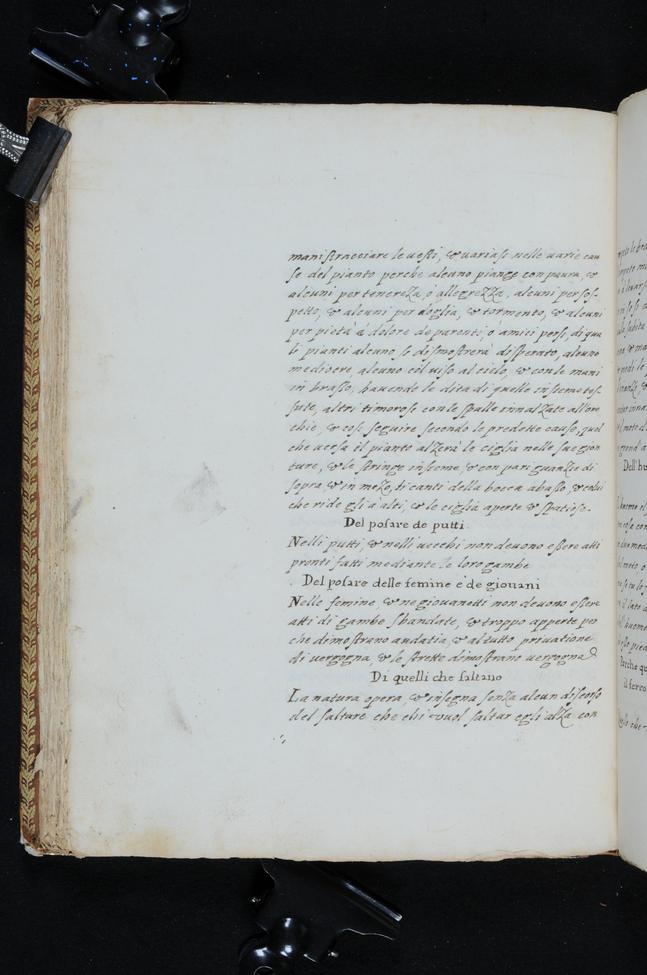 mani stracciare le uesti, & uariasi nelle uarie cau
se del pianto perche alcuno piange con paura, &
alcuni per tenerezza, ò allegrezza, alcuni per sos-
petto, & alcuni per doglia, & tormento, & alcuni
per pietà di dolore de parenti, ò amici persi, di qua
li pianti alcuno si dismostrerà disperato, alcuno
mediocre, alcuno col uiso al cielo, & con le mani
in basso, hauende le dita di quelle insieme tes-
sute, altri timorosi con le spalle innalzate all'ore
chie, & cosi seguire secondo le predette cause, quel
che uersa il pianto alzerà le ciglia nelle sue gion
ture, & le stringe insieme, & con pari guanzia di
sopra & in mezo, li canti della bocca abassa, & colui
che ride gli a alti, & le ciglia aperte & spatiose.
Del posare de putti
Nelli putti, & nelli uecchi non deuono essere atti
pronti fatti mediante le loro gambe
Del posare delle femine è de giouani
Nelle femine & ne giouanetti non deuono essere
atti di gambe sbandate, & troppo apperte per
che dimostrano audatia, & al tutto priuatione
di uergogna, & le strette dimostrano uergogna
Di quelli che saltano
La natura opera, & insegna senza alcun discorso
del saltare che chi vuol saltar egli alza con
Dell'hu